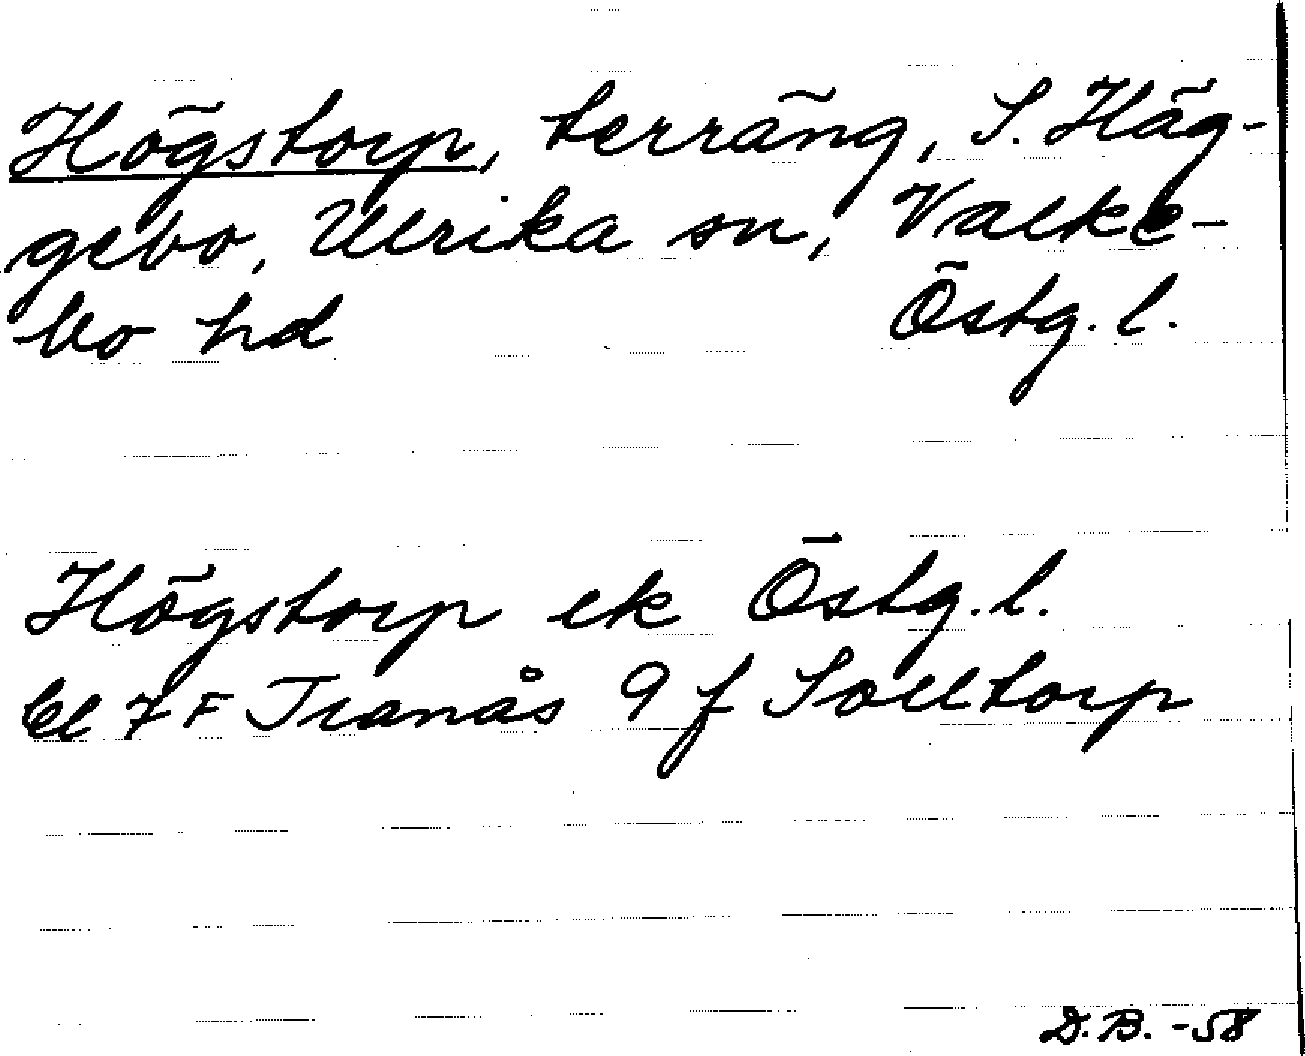 Högstorp, terräng, S. Häg-
gebo, Ulrika sn, Valke-
bo hd Östg. l.
Högstorp ek Östg. l.
bl 7F Tranås 9 f Solltorp
D.B. -58